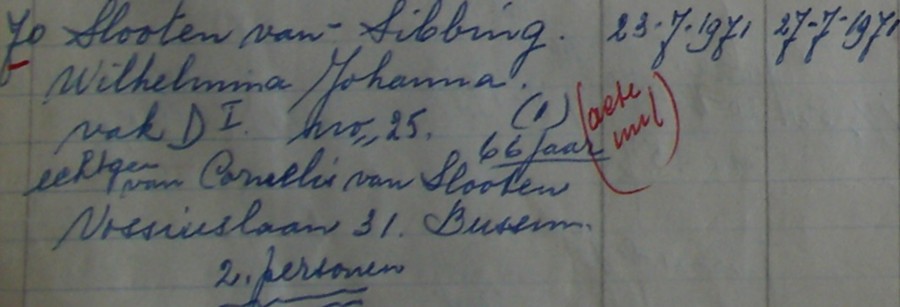 70 Slooten van - Sibbing. 23-7-1971 27-7-1971
Wilhelmina Johanna.
vak D I. no,, 25. (1) (acte
66 jaar
echtgen van Cornelis van Slooten
Vossiuslaan 31. Bussum.
2. personen